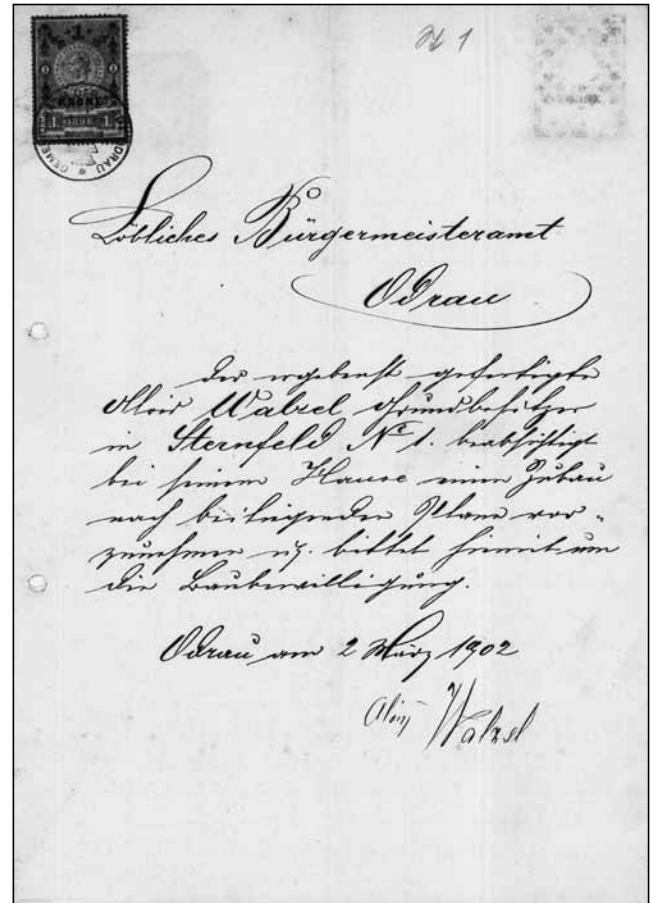 1
1
1
KRONE
1 KRONE 1
GEMEINDE ODRAU
Nr 1
Löbliches Bürgermeisteramt
Odrau
Der ergebenst gefertigte
Alois Walzel Grundbesitzer
in Sternfeld No 1. beabsichtigt
bei seinem Hause einen Zubau
nach beiliegenden Plane vor-
zunehmen u. bittet hiemit um
die Baubewilligung.
Odrau am 2 März 1902
Alois Walzel